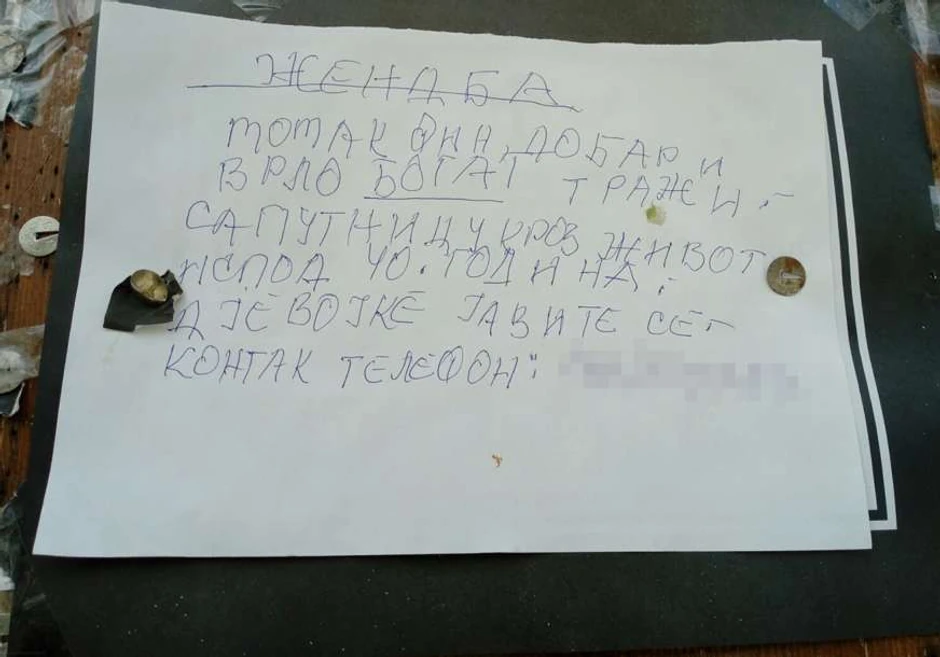 ЖЕНДБА
МОМАК ФИН, ДОБАР И
ВРЛО БОГАТ ТРАЖИ.-
САПУТНИЦУ КРОЗ ЖИВОТ
ИСПОД 40. ГОДИНА.
ДЈЕВОЈКЕ ЈАВИТЕ СЕ-
КОНТАК ТЕЛЕФОН: